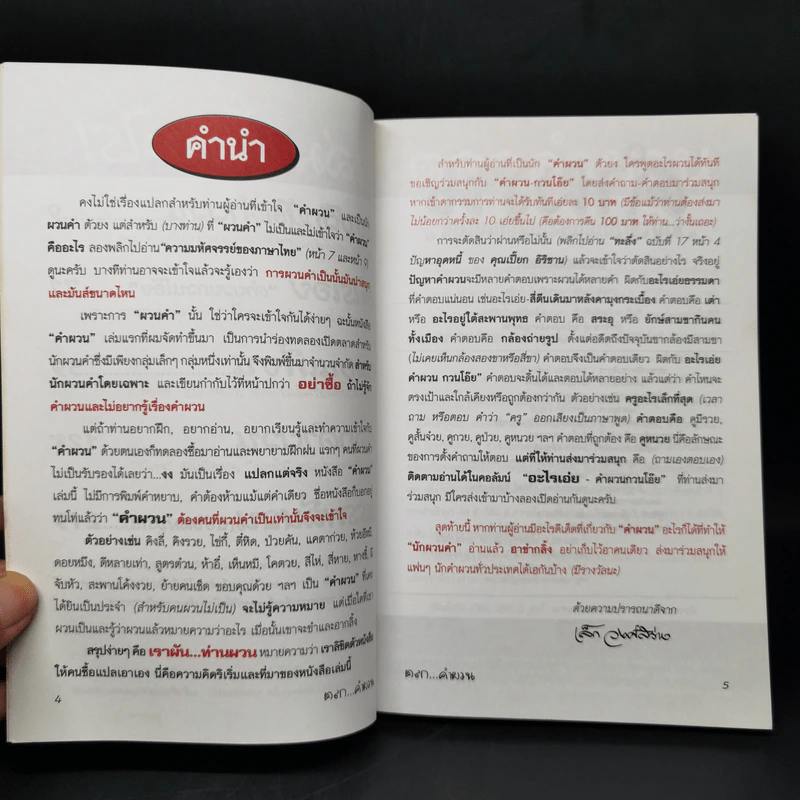 คำนำ
คงไม่ใช่เรื่องแปลกสำหรับท่านผู้อ่านที่เข้าใจ "คำผวน" และเป็นนัก
ผวนคำ ตัวยง แต่สำหรับ (บางท่าน) ที่ "ผวนคำ" ไม่เป็นและไม่เข้าใจว่า "คำผวน"
คืออะไร ลองพลิกไปอ่าน "ความมหัศจรรย์ของภาษาไทย" (หน้า 7 และหน้า 9)
ดูนะครับ บางทีท่านอาจจะเข้าใจแล้วจะรู้เองว่า การผวนคำเป็นนั้นมันน่าสนุก
และมันส์ขนาดไหน
เพราะการ "ผวนคำ" นั้น ใช่ว่าใครจะเข้าใจกันได้ง่ายๆ ฉะนั้นหนังสือ
"คำผวน" เล่มแรกที่ผมจัดทำขึ้นมา เป็นการนำร่องทดลองเปิดตลาดสำหรับ
นักผวนคำซึ่งมีเพียงกลุ่มเล็กๆ กลุ่มหนึ่งเท่านั้น จึงพิมพ์ขึ้นมาจำนวนจำกัด สำหรับ
นักผวนคำโดยเฉพาะ และเขียนกำกับไว้ที่หน้าปกว่า อย่าซื้อ ถ้าไม่รู้จัก
คำผวนและไม่อยากรู้เรื่องคำผวน
แต่ถ้าท่านอยากฝึก, อยากอ่าน, อยากเรียนรู้และทำความเข้าใจกับ
"คำผวน" ด้วยตนเองก็ทดลองซื้อมาอ่านและพยายามฝึกฝน แรกๆ คนที่ผวนคำ
ไม่เป็นรับรองได้เลยว่า...งง มันเป็นเรื่อง แปลกแต่จริง หนังสือ "คำผวน"
เล่มนี้ ไม่มีการพิมพ์คำหยาบ, คำต้องห้ามแม้แต่คำเดียว ชื่อหนังสือก็บอกอยู่
ทนโท่แล้วว่า "คำผวน" ต้องคนที่ผวนคำเป็นเท่านั้นจึงจะเข้าใจ
ตัวอย่างเช่น คิงลี่, คิงรวย, ไข่กี้, ตี่หิด, ป่วยคัน, แคตาก่วย, ห้วยยีหมี,
ดอยหมึง, ดีหลายเท่า, สูตรต๋วน, ห้าอี้, เห็นหมี, โคตวย, สีไห่, สี่หาย, หางชี้, ผี
จับหัว, สะพานโค้งงวง, ย้ายคนเช็ด ขอบคุณด้วย ฯลฯ เป็น "คำผวน" ที่เคย
ได้ยินเป็นประจำ (สำหรับคนผวนไม่เป็น) จะไม่รู้ความหมาย แต่เมื่อใดที่เขา
ผวนเป็นและรู้ว่าผวนแล้วหมายความว่าอะไร เมื่อนั้นเขาจะขำและอากลิ้ง
สรุปง่ายๆ คือ เราผัน...ท่านผวน หมายความว่า เราลิขิตตัวหนังสือ
ให้คนซื้อแปลเอาเอง นี่คือความคิดริเริ่มและที่มาของหนังสือเล่มนี้
4
ตลก...คำผวน
สำหรับท่านผู้อ่านที่เป็นนัก "คำผวน" ตัวยง ใครพูดอะไรผวนได้ทันที
ขอเชิญร่วมสนุกกับ "คำผวน-กวนโอ๊ย" โดยส่งคำถาม-คำตอบมาร่วมสนุก
หากเข้าตากรรมการท่านจะได้รับทันทีเอ่ยละ 10 บาท (มีข้อแม้ว่าท่านต้องส่งมา
ไม่น้อยกว่าครั้งละ 10 เอ่ยขึ้นไป (คือต้องการคืน 100 บาท ให้ท่าน...ว่างั้นเถอะ)
การจะตัดสินว่าผ่านหรือไม่นั้น (พลิกไปอ่าน "ทะลึ่ง" ฉบับที่ 17 หน้า 4
ปัญหาอุดหนี้ ของ คุณเปี๊ยก อิริซาน) แล้วจะเข้าใจว่าตัดสินอย่างไร จริงอยู่
ปัญหาคำผวนจะมีหลายคำตอบเพราะผวนได้หลายคำ ผิดกับอะไรเอ่ยธรรมดา
ที่คำตอบแน่นอน เช่นอะไรเอ่ย-สี่ตีนเดินมาหลังคามุงกระเบื้อง คำตอบคือ เต่า
หรือ อะไรอยู่ใต้สะพานพุทธ คำตอบ คือ สระอุ หรือ ยักษ์สามขากินคน
ทั้งเมือง คำตอบคือ กล้องถ่ายรูป ตั้งแต่อดีตถึงปัจจุบันขากล้องมีสามขา
(ไม่เคยเห็นกล้องสองขาหรือสี่ขา) คำตอบจึงเป็นคำตอบเดียว ผิดกับ อะไรเอ่ย
คำผวน กวนโอ๊ย" คำตอบจะดิ้นได้และตอบได้หลายอย่าง แล้วแต่ว่า คำไหนจะ
ตรงเป้าและใกล้เคียงหรือถูกต้องกว่ากัน ตัวอย่างเช่น ครูอะไรเล็กที่สุด (เวลา
ถาม หรือตอบ คำว่า "ครู" ออกเสียงเป็นภาษาพูด) คำตอบคือ คูมีรวย,
คูสั้นจ๋วย, คูกวย, คูป่วย, คูหนวย ฯลฯ คำตอบที่ถูกต้อง คือ คูหนวย นี่คือลักษณะ
ของการตั้งคำถามให้ตอบ แต่ที่ให้ท่านส่งมาร่วมสนุก คือ (ถามเองตอบเอง)
ติดตามอ่านได้ในคอลัมน์ "อะไรเอ่ย - คำผวนกวนโอ๊ย" ที่ท่านส่งมา
ร่วมสนุก มีใครส่งเข้ามาบ้างลองเปิดอ่านกันดูนะครับ
สุดท้ายนี้ หากท่านผู้อ่านมีอะไรดีเด็ดที่เกี่ยวกับ "คำผวน" อะไรก็ได้ที่ทำให้
"นักผวนคำ" อ่านแล้ว ฮาขำกลิ้ง อย่าเก็บไว้ฮาคนเดียว ส่งมาร่วมสนุกให้
แฟนๆ นักคำผวนทั่วประเทศได้เฮกันบ้าง (มีรางวัลนะ)
ด้วยความปรารถนาดีจาก
ตลก...คำผวน
5